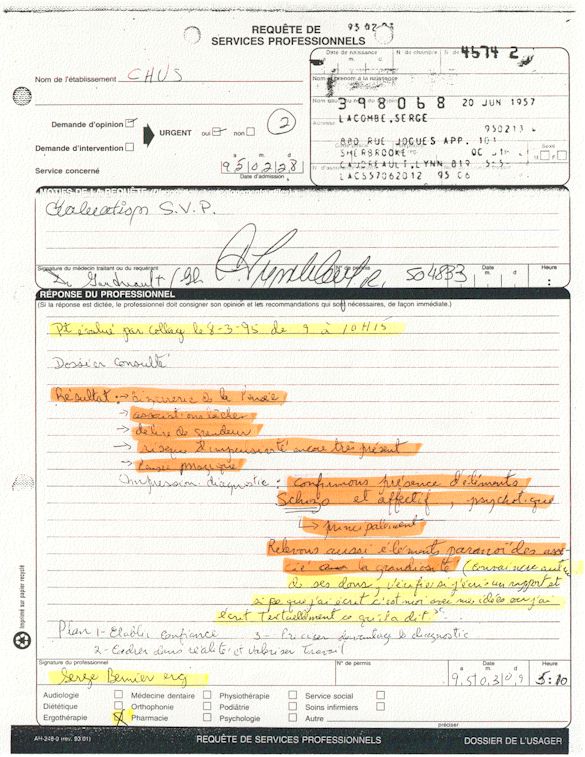 REQUÊTE DE
SERVICES PROFESSIONNELS
Date de naissance N. de chambre
4574 2
Nom de l'établissement CHUS
Nom et prénom à la naissance
398068 20 JUN 1957
LACOMBE, SERGE
Adresse 950213
Demande d'opinion
URGENT oui non 2
880 RUE JOGUES APP. 101
Demande d'intervention
SHERBROOKE QC
Sexe
M F
GAUDREAULT, LYNN 819
Service concerné 95 02 28
LACS57062012 95 06
a. m. d.
Date d'admission
Évaluation S.V.P.
Signature du médecin traitant ou du requérant N° de permis Date m. d. Heure
Dr Gaudreault / 504833
RÉPONSE DU PROFESSIONNEL
(Si la réponse est dictée, le professionnel doit consigner son opinion et les recommandations qui sont nécessaires, de façon immédiate.)
Pt évalué par collège le 8-3-95 de 9 à 10H15
Dossier consulté
Résultat : → de la Pensée
→ associations
→ délire de grandeur
→ risque d'impulsivité encore très présent
→ Pensée magique
Impression diagnostic : confirmons présence d'éléments
Schizo et affectif, psychotique
↳ principalement
Relevons aussi éléments paranoïdes asso-
cié à la grandiosité (convaincu
de ses dons, vérifie si j'écris un rapport et
si ce que j'ai écrit c'est moi avec mes idées ou j'ai
écrit textuellement ce qu'il a dit.
Plan 1- Établir confiance 3- Préciser davantage le diagnostic
2- Cadrer dans réalité et valoriser travail
Signature du professionnel N° de permis a. m. d. Heure
Serge Bernier erg 95 03 09 5:10
Audiologie Médecine dentaire Physiothérapie Service social
Diététique Orthophonie Podiâtrie Soins infirmiers
Ergothérapie Pharmacie Psychologie Autre
préciser
AH-248-0 (rev. 93.01) REQUÊTE DE SERVICES PROFESSIONNELS DOSSIER DE L'USAGER
Imprimé sur papier recyclé